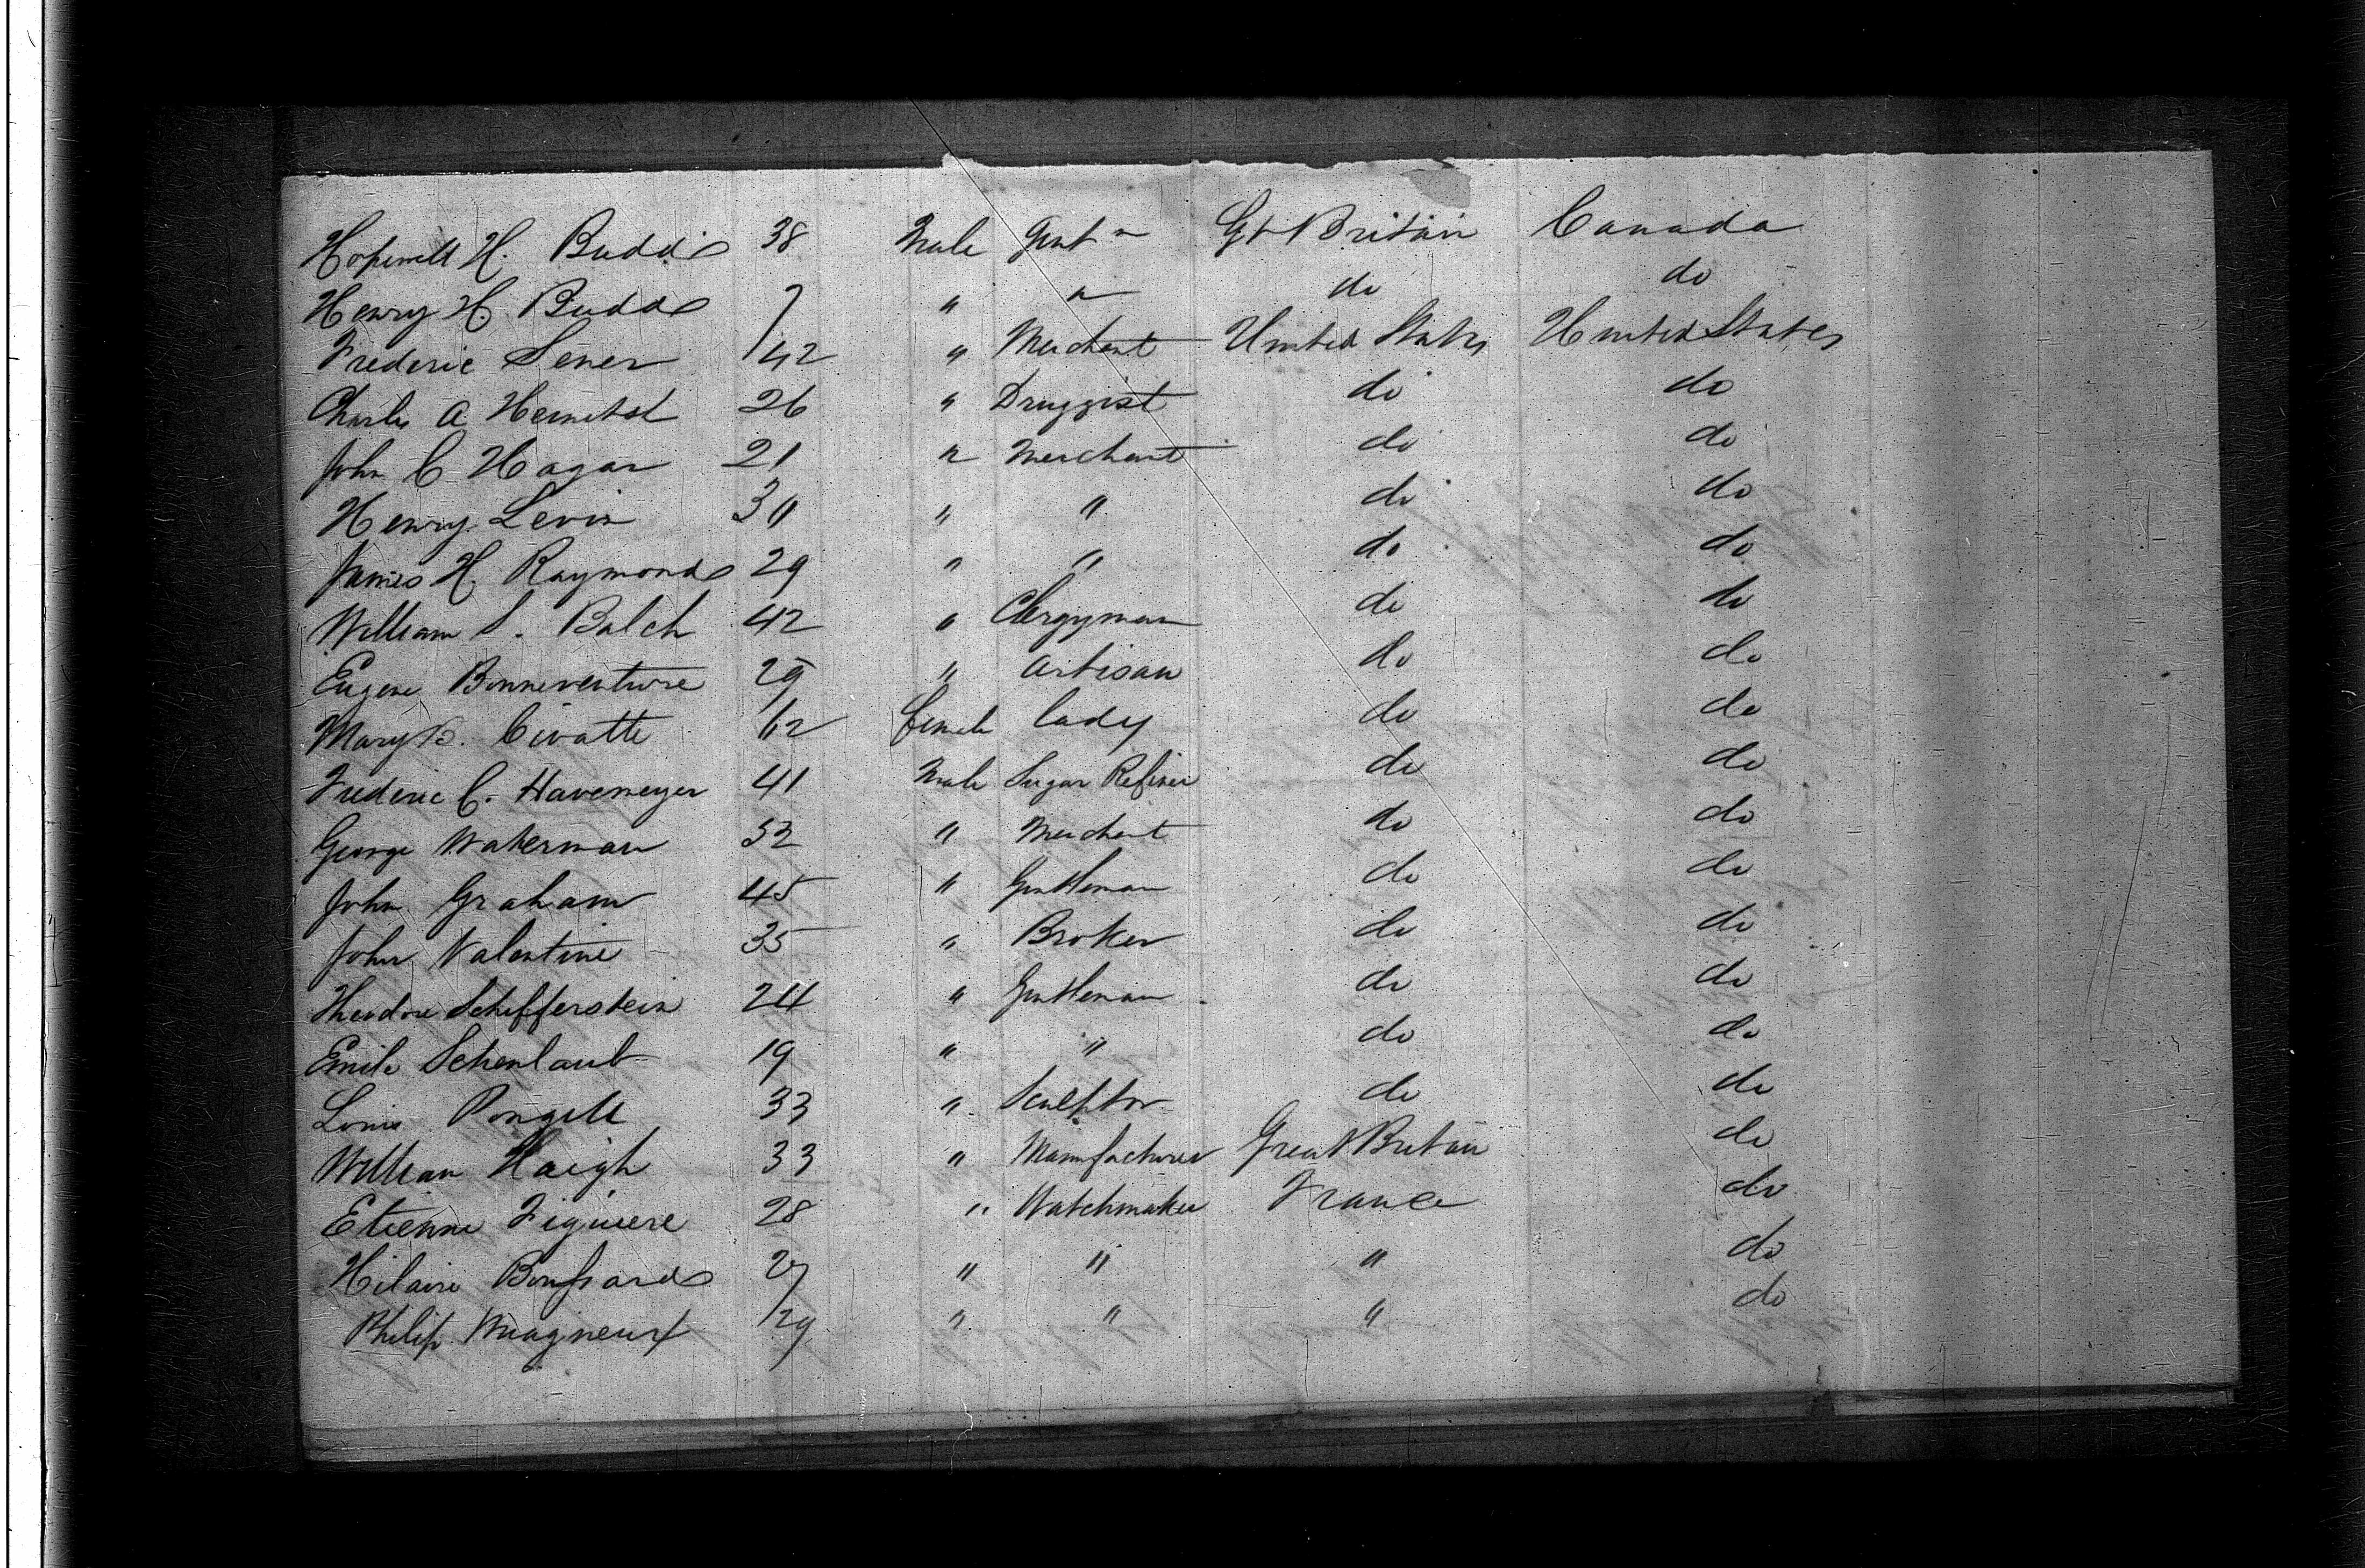 Hopewell H. Budd 38 Male Gentn Gt Britain Canada
Henry H. Budd 7 " " do do
Frederic Sener 42 " Merchant United States United States
Charles A 26 " Druggist do do
John C Hagar 21 " Merchant do do
Henry Levin 30 " " do do
James H. Raymond 29 " " do do
William S. Balch 42 " Clergyman do do
Eugene Bonneventure 29 " Artisan do do
Mary B. Civatte 62 female lady do do
Frederic C. Havemeyer 41 Male Sugar Refiner do do
George Waterman 32 " Merchant do do
John Graham 45 " Gentleman do do
John Valentine 35 " Broker do do
Theodore Schifferstein 24 " Gentleman do do
Emile Schenlaub 19 " " do do
Louis 33 " Sculptor do do
William Haigh 33 " Manufacturer Great Britain do
Etienne Figuiere 28 " Watchmaker France do
Hilaire 27 " " " do
Philip Magneux 29 " " " do